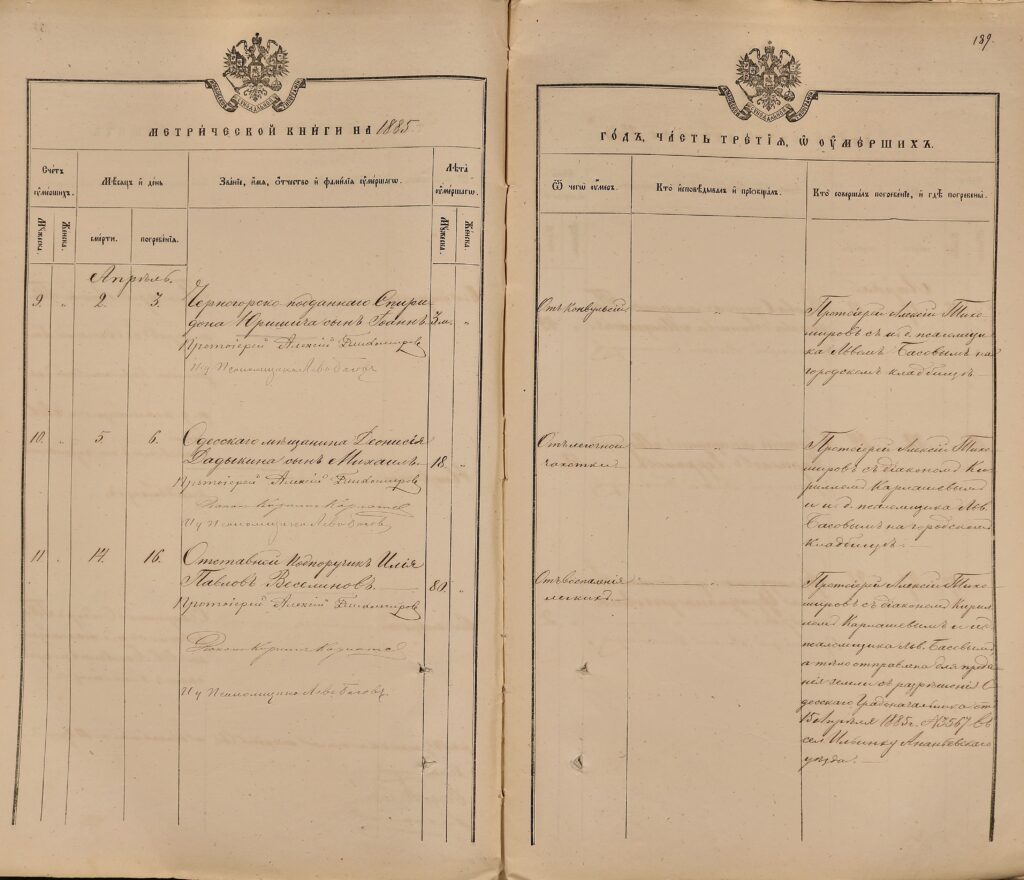 189.
МЕТРИ́ЧЕСКОЙ КНИ́ГИ НА 1885
ГО́ДЪ, ЧА́СТЬ ТРЕ́ТІЯ, Ѡ ОУ҆МЕ́РШИХЪ.
Счетъ
оумершихъ.
Мѣсяцъ и день
Званіе, имя, отчество и фамилія оумершагѡ.
Лѣта
оумершагѡ.
Мужеска.
Женска.
смерти.
погребенія.
Мужеска.
Женска.
Ѿ чегѡ оумеръ.
Кто исповѣдывалъ и пріобщалъ.
Кто совершалъ погребеніе, и гдѣ погребены.
Апрѣль.
9. „ 2. 3. Черногорско-подданнаго Спири-
дона Юришича сынъ Іоаннъ 3 м. „
Протоіерей Алексій Тихомировъ
И д Псаломщика Левъ Басовъ
Отъ конвульсій
Протоіерей Алексій Тихо-
мировъ съ и. д. псаломщи-
ка Львомъ Басовымъ на
городскомъ кладбищѣ.
10. „ 5 6. Одесскаго мѣщанина Діонисія
Дадыкина сынъ Михаилъ. 18. „
Протоіерей Алексій Тихомировъ
Діаконъ Кириллъ Карпашевъ
И д Псаломщика Левъ Басовъ
Отъ легочной
чахотки
Протоіерей Алексій Тихо-
мировъ съ діакономъ Ки-
рилломъ Карпашевымъ
и и. д. псаломщика Льв.
Басовымъ на городскомъ
кладбищѣ.
11. „ 14. 16. Отставной Подпоручикъ Илія
Павловъ Веселиновъ. 80. „
Протоіерей Алексій Тихомировъ
Діаконъ Кириллъ Карпашевъ
И д Псаломщика Левъ Басовъ
Отъ воспаленія
легкихъ.
Протоіерей Алексій Тихо-
мировъ съ діакономъ Кирил-
ломъ Карпашевымъ и и. д.
псаломщика Льв. Басовымъ
а тѣло отправлено для преда-
нія землѣ съ разрѣшенія О-
десскаго Градоначальника отъ
15 Апрѣля 1885 г. №3567 въ
сел. Ильинку Ананьевскаго
уѣзда.